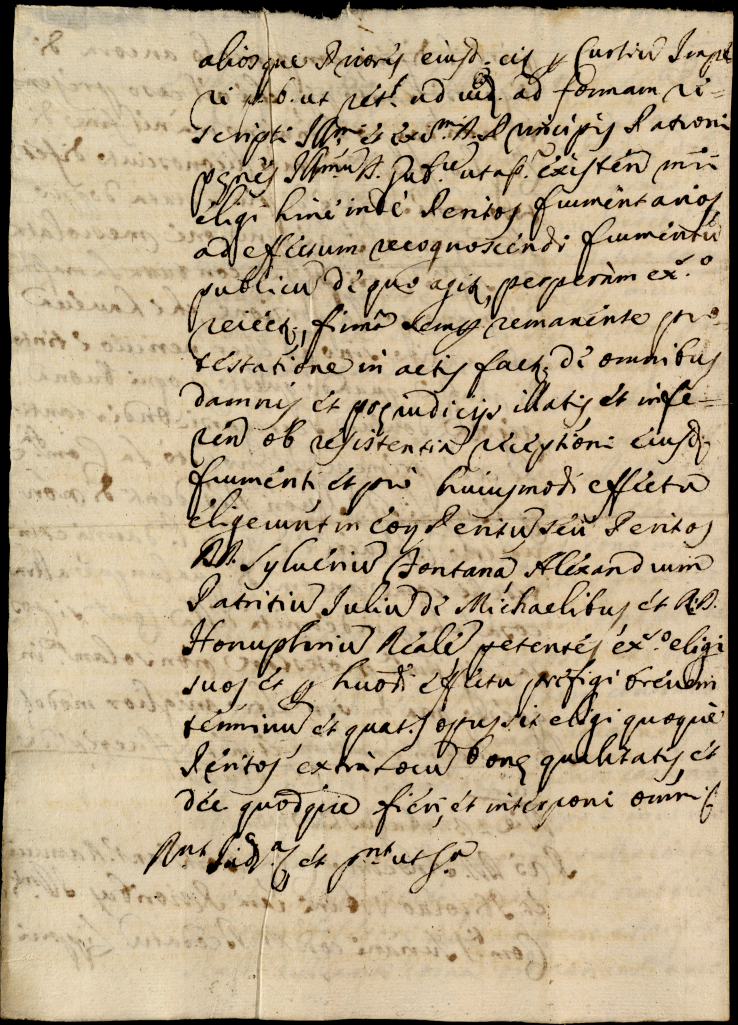 aliosque Priores eiusd. cis p Curtiu Impe
ri p. b. ut rest. ad ad formam re=
scripti Illmi et exSmi D. Principis Patroni
penes Illmu D. Gub.re utasp. existen mii
eligi hinc inde Peritos frumentarios
ad effectum recognoscendi frumentu
publicu de quo agit, perperam ex.o
reiect:, firma semp remanente pro=
testatione in actis fact: de omnibus
damnis et preiudicijs illatis et infe=
ren ob resistentia receptioni eiusd:
frumenti et pro huiusmodi effectu
eligerunt in eoru Peritu seu Peritos
DD. Syluériu Fontana Alexandrum
Patritiu Juliu de Michaelibus et R.D.
Honuphriu Reale petentes ex.o eligi
suos et p huodi effectu prefigi brevem
terminu et quat. opus sit eligi quoque
Peritos extra locu bone qualitatis et
dee quodque fieri, et interponi omni
et pnt ut Sa